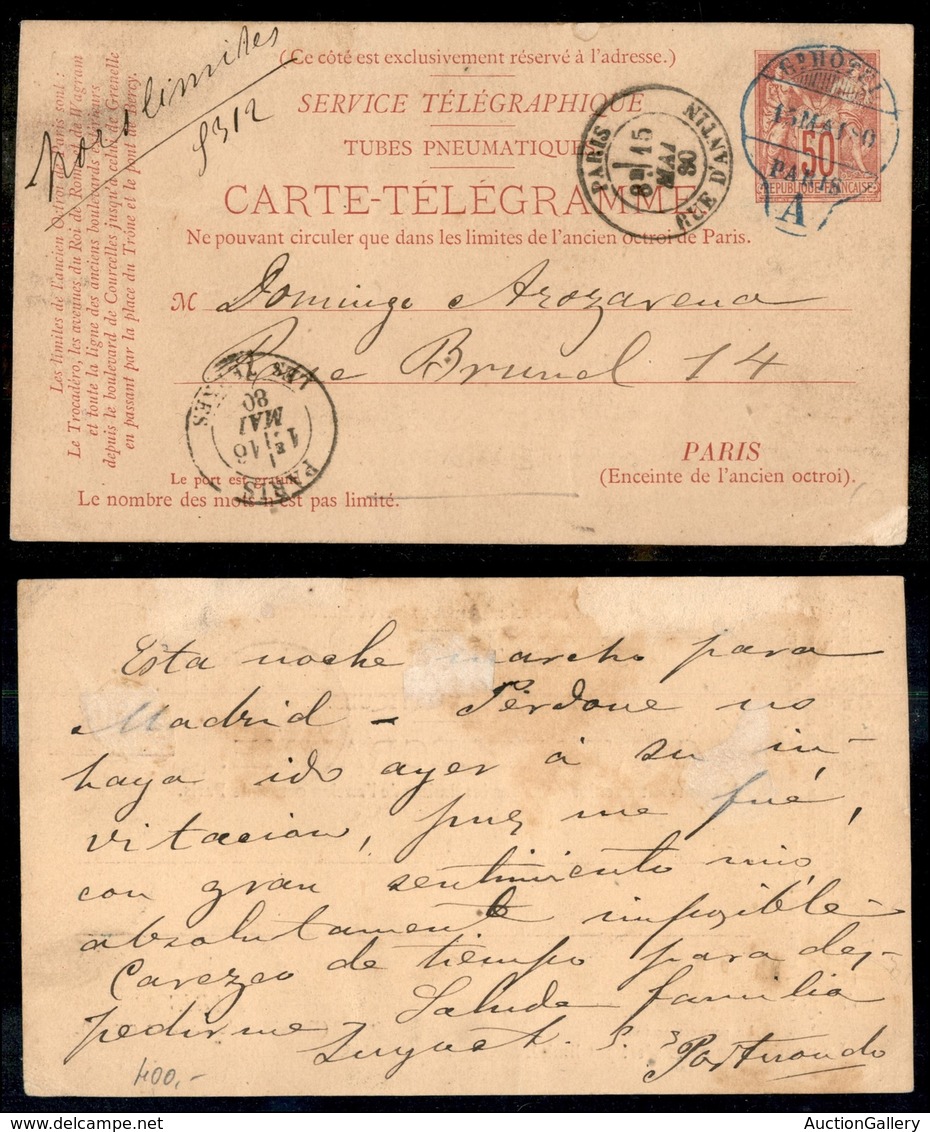 hors limites
8312
(Ce côté est exclusivement réservé à l'adresse.)
SERVICE TÉLÉGRAPHIQUE
TUBES PNEUMATIQUES
CARTE-TÉLÉGRAMME
Ne pouvant circuler que dans les limites de l'ancien octroi de Paris.
Les limites de l'ancien Octroi de Paris sont :
le Trocadéro, les avenues du Roi de Rome et de Wagram
et toute la ligne des anciens boulevards extérieurs
depuis le boulevard de Courcelles jusqu'à celui de Grenelle
en passant par la place du Trône et le pont de Bercy.
PARIS
RUE D'ANTIN
15
80
15 MAI 80
PARIS
A
50
REPUBLIQUE FRANÇAISE
M Domingo Arozarena
Rue Brunel 14
PARIS
LES TERNES
16
MAI
80
PARIS
(Enceinte de l'ancien octroi).
Le port est gratuit
Le nombre des mots n'est pas limité.
Esta noche marcho para
Madrid - Perdone no
haya ido ayer á su in-
vitacion, pues me fué,
con gran sentimiento mio
absolutamente imposible-
Carezco de tiempo para des-
pedirme, Saluda familia
S. S.
Portuondo
400,-
AuctionGallery